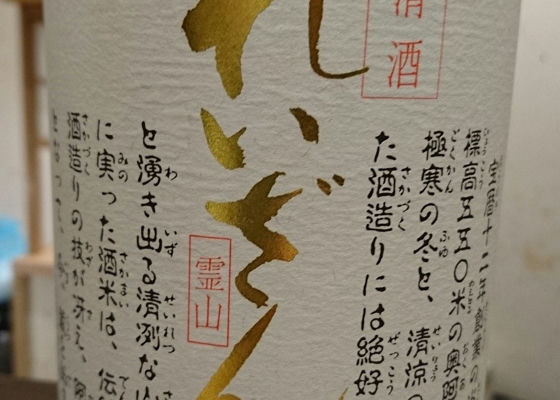 宝暦十二年創業の
標高五五〇米の奥阿
極寒の冬と、清涼の
た酒造りには絶好
清酒
れいざん
霊山
と湧き出る清冽な山
に実った酒米は、伝
酒造りの技が冴え、
となって、